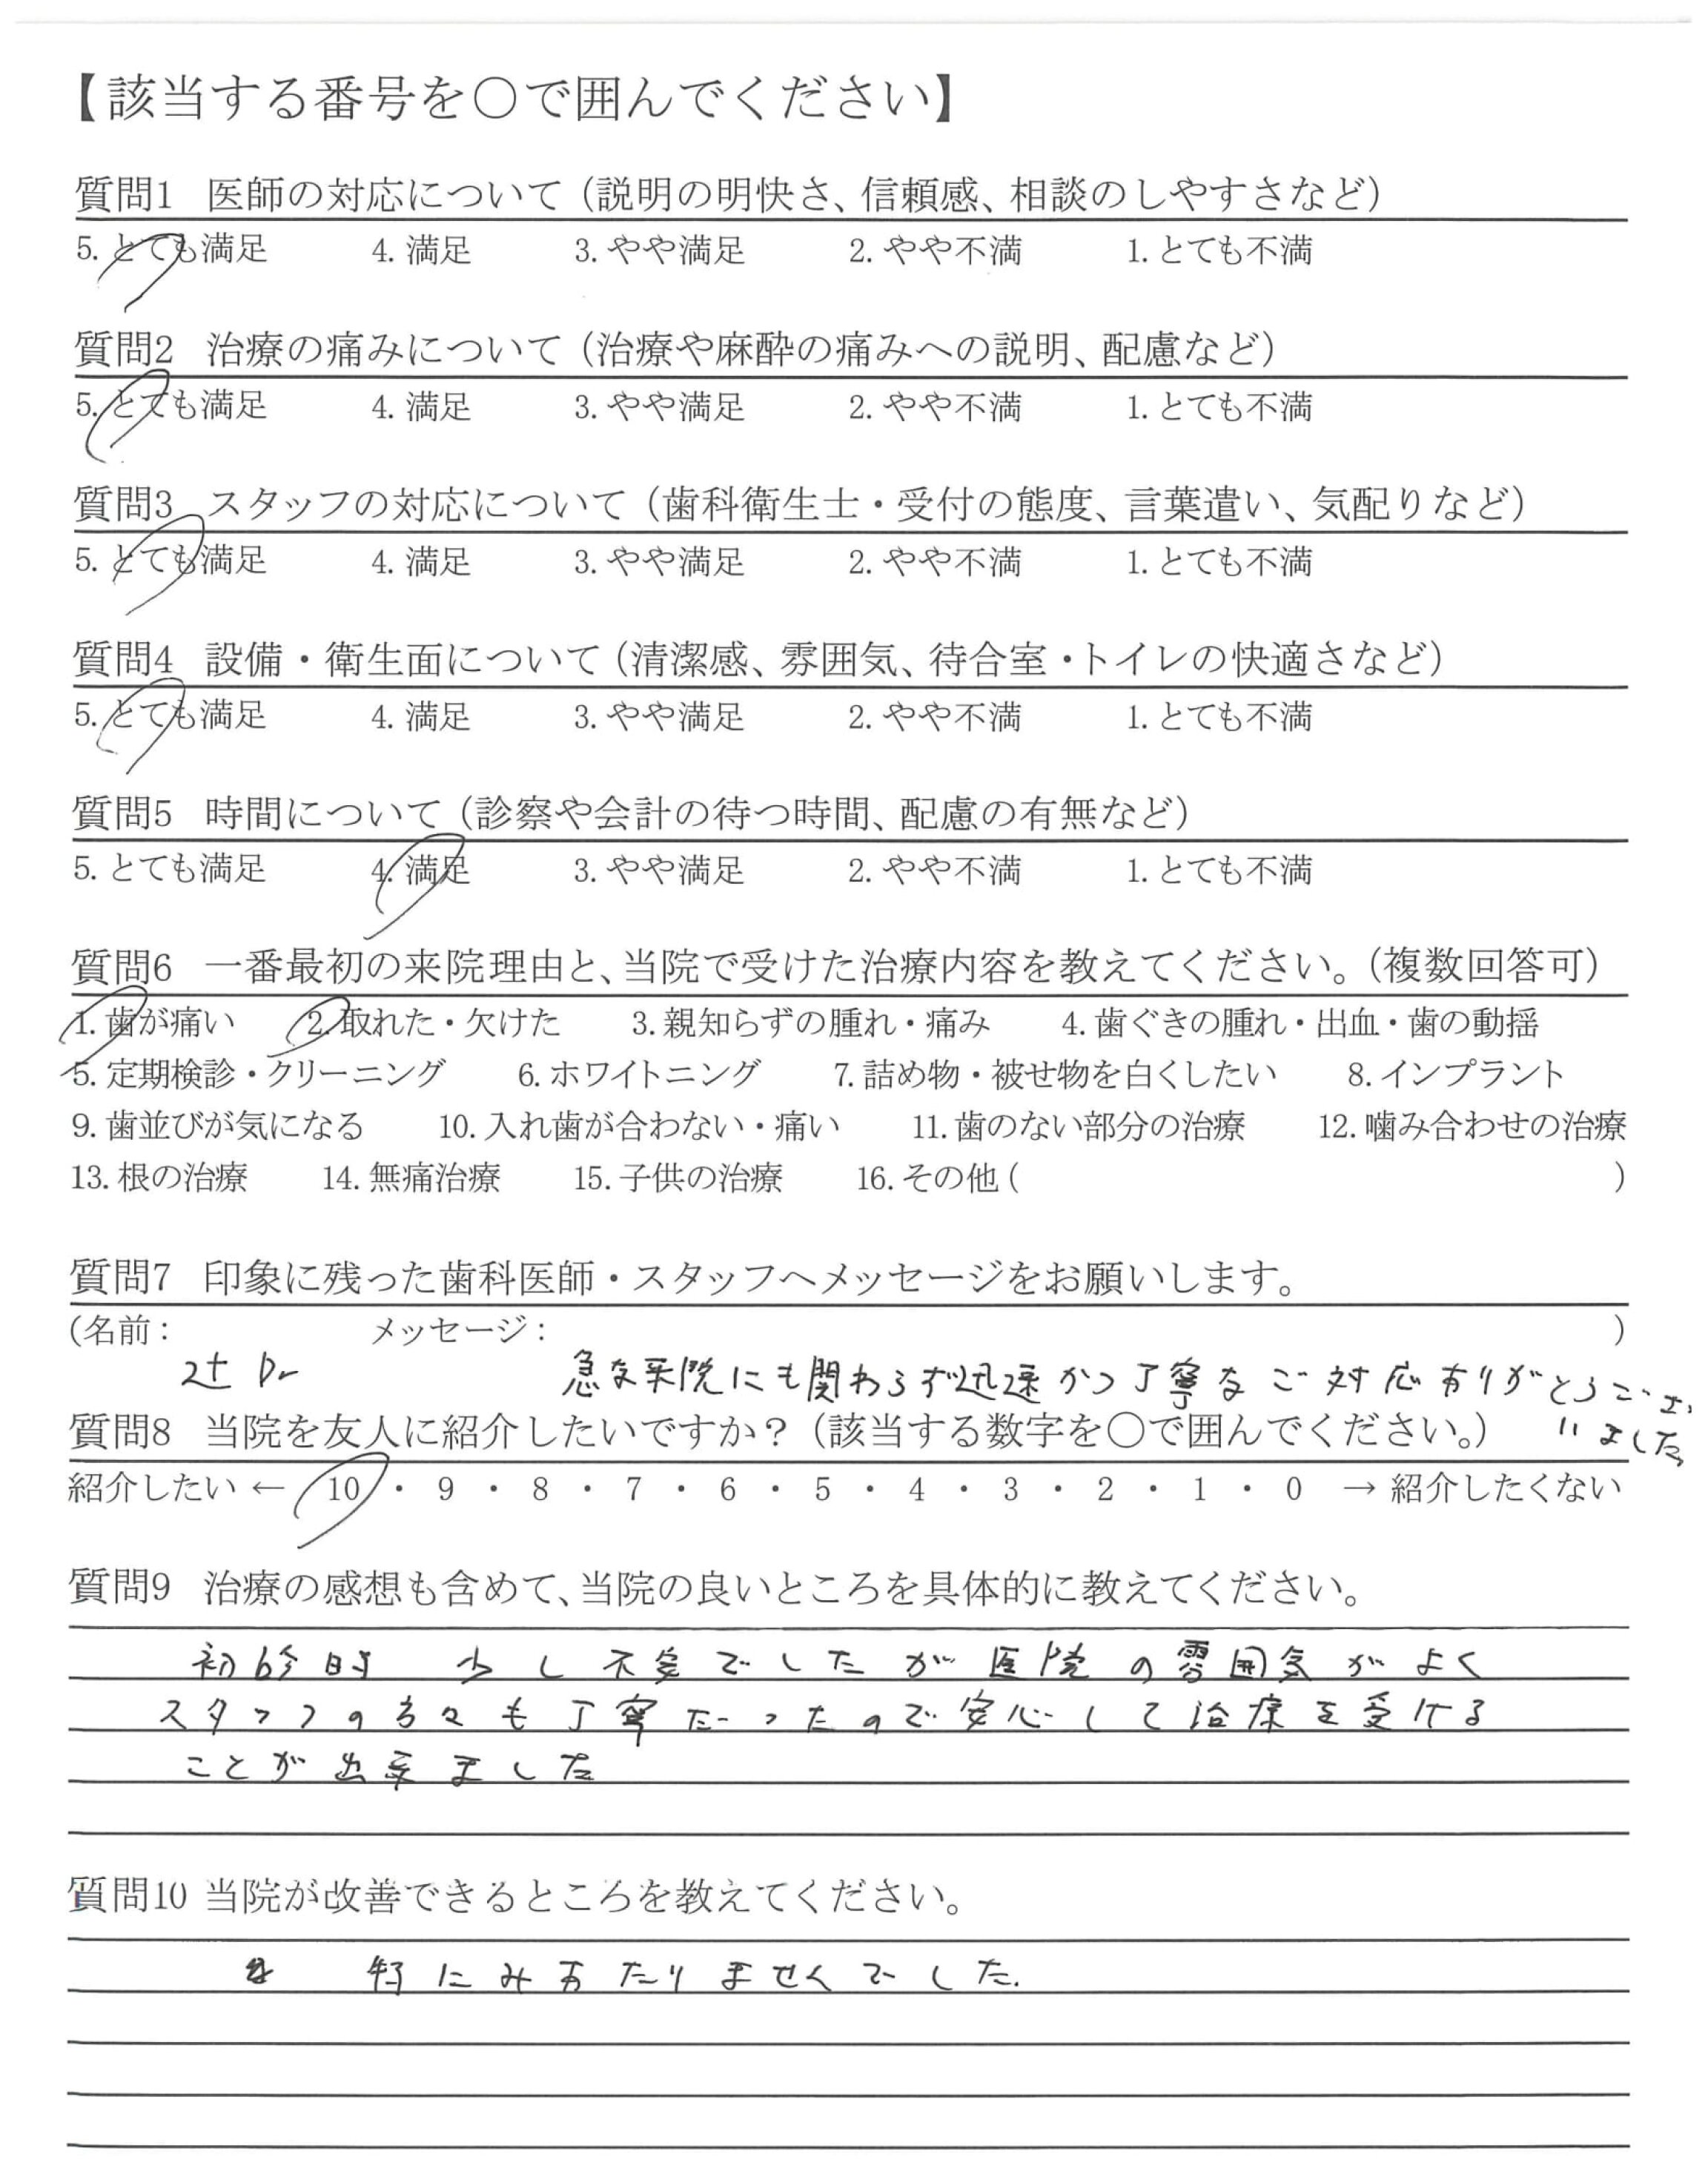 【該当する番号を○で囲んでください】
質問1 医師の対応について（説明の明快さ、信頼感、相談のしやすさなど）
5. とても満足 4. 満足 3. やや満足 2. やや不満 1. とても不満
質問2 治療の痛みについて（治療や麻酔の痛みへの説明、配慮など）
5. とても満足 4. 満足 3. やや満足 2. やや不満 1. とても不満
質問3 スタッフの対応について（歯科衛生士・受付の態度、言葉遣い、気配りなど）
5. とても満足 4. 満足 3. やや満足 2. やや不満 1. とても不満
質問4 設備・衛生面について（清潔感、雰囲気、待合室・トイレの快適さなど）
5. とても満足 4. 満足 3. やや満足 2. やや不満 1. とても不満
質問5 時間について（診察や会計の待つ時間、配慮の有無など）
5. とても満足 4. 満足 3. やや満足 2. やや不満 1. とても不満
質問6 一番最初の来院理由と、当院で受けた治療内容を教えてください。（複数回答可）
1. 歯が痛い 2. 取れた・欠けた 3. 親知らずの腫れ・痛み 4. 歯ぐきの腫れ・出血・歯の動揺
5. 定期検診・クリーニング 6. ホワイトニング 7. 詰め物・被せ物を白くしたい 8. インプラント
9. 歯並びが気になる 10. 入れ歯が合わない・痛い 11. 歯のない部分の治療 12. 噛み合わせの治療
13. 根の治療 14. 無痛治療 15. 子供の治療 16. その他（ ）
質問7 印象に残った歯科医師・スタッフへメッセージをお願いします。
（名前： メッセージ： ）
辻 Dr 急な来院にも関わらず迅速かつ丁寧なご対応ありがとうござ
いました
質問8 当院を友人に紹介したいですか？（該当する数字を○で囲んでください。）
紹介したい ← 10 ・ 9 ・ 8 ・ 7 ・ 6 ・ 5 ・ 4 ・ 3 ・ 2 ・ 1 ・ 0 → 紹介したくない
質問9 治療の感想も含めて、当院の良いところを具体的に教えてください。
初診時 少し不安でしたが医院の雰囲気がよく
スタッフの方々も丁寧だったので安心して治療を受ける
ことが出来ました
質問10 当院が改善できるところを教えてください。
特にみあたりませんでした.